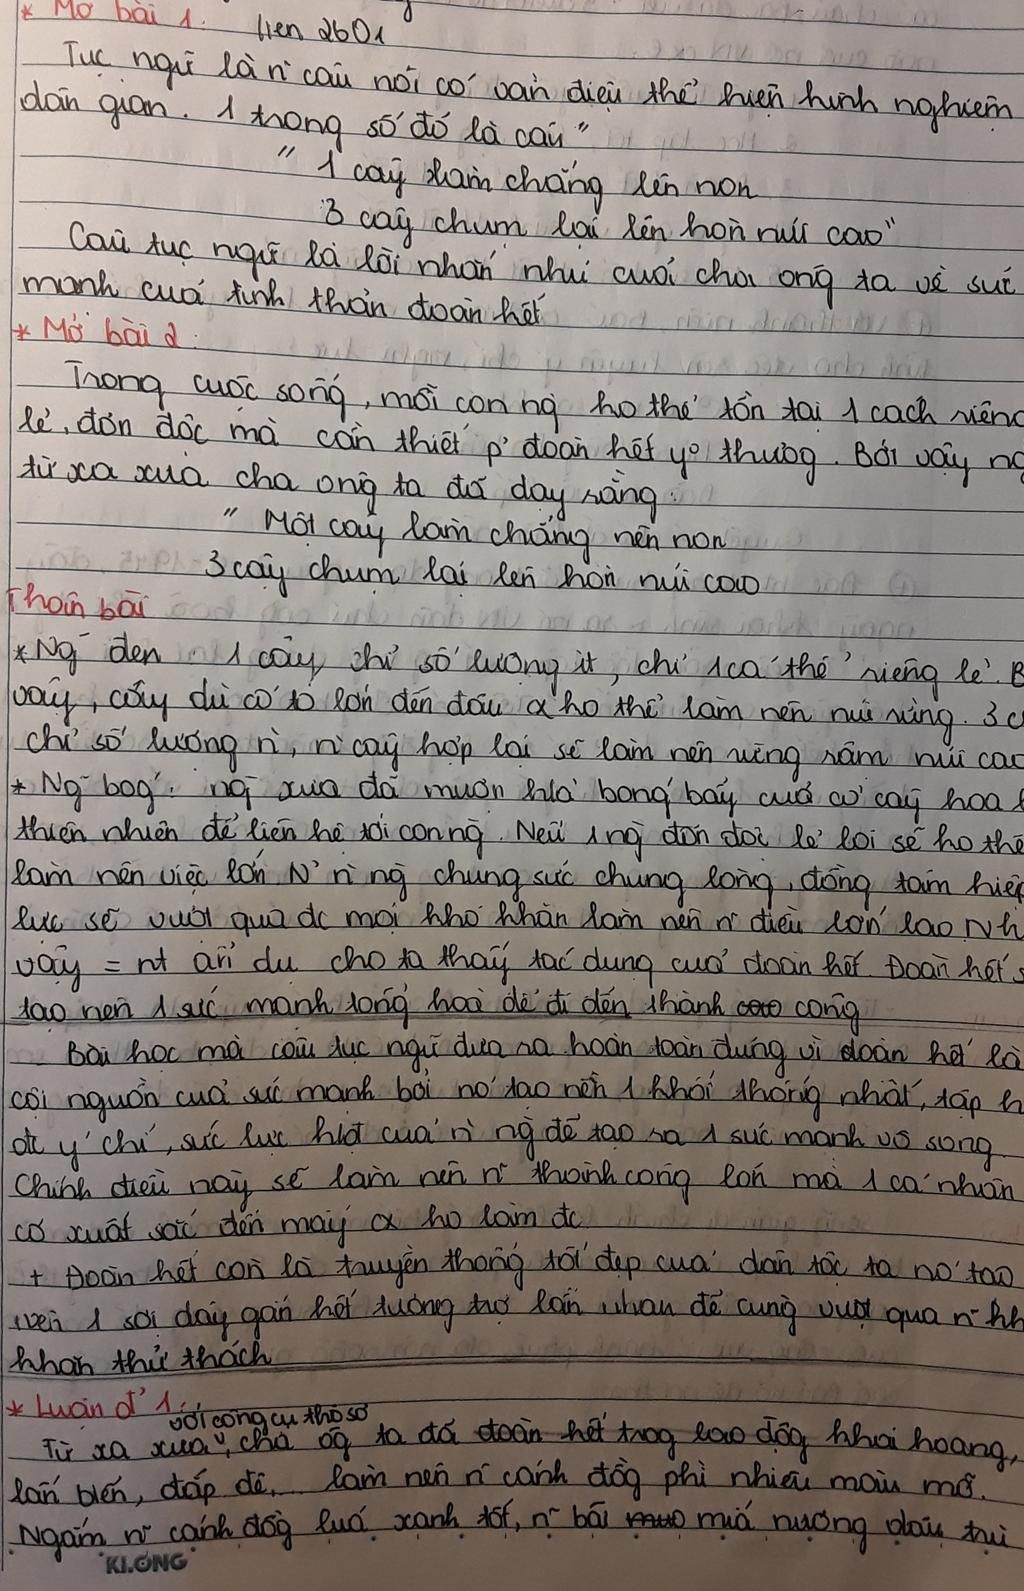 * Mở bài 1. lien 2601
Tục ngữ là n~ câu nói có vần điệu thể hiện kinh nghiệm
dân gian. 1 trong số đó là câu "
" 1 cây làm chẳng lên non
3 cây chụm lại lên hòn núi cao"
Câu tục ngữ là lời nhắn nhủ cuả cha ông ta về sức
mạnh cuả tinh thần đoàn kết
* Mở bài 2 :
Trong cuộc sống, mỗi con ng ko thể tồn tại 1 cách riêng
lẻ, đơn độc mà cần thiết p' đoàn kết yº thương. Bởi vậy ng
từ xa xưa cha ông ta đã dạy rằng :
" Một cây làm chẳng nên non
3 cây chụm lại lên hòn núi cao
Thân bài
* Ng~ đen : 1 cây chỉ số lượng ít, chỉ 1 cá thể riêng lẻ. B
vậy, cây dù có to lớn đến đâu α ko thể làm nên núi rừng. 3 c
chỉ số lượng n`, n` cây hợp lại sẽ làm nên rừng rậm núi cao
* Ng~ bog' : ng xưa đã mượn h/ả bóng bẩy cuả cỏ cây hoa l
thiên nhiên để liên hệ tới con ng. Nếu 1 ng đơn độc lẻ loi sẽ ko thể
làm nên việc lớn N' n` ng chung sức chung lòng, đồng tâm hiệp
lực sẽ vượt qua đc mọi khó khăn làm nên n~ điều lớn lao Nh
vậy = nt ẩn dụ cho ta thấy tác dụng cuả đoàn kết. Đoàn kết s
tạo nên 1 sức mạnh tổng hoà để đi đến thành công
Bài học mà câu tục ngữ đưa ra hoàn toàn đúng vì đoàn kết là
cội nguồn cuả sức mạnh bởi nó tạo nên 1 khối thống nhất, tập h
đc ý chí, sức lực, h/lọt cuả n` ng để tạo ra 1 sức mạnh vô song
Chính điều này sẽ làm nên n~ thành công lớn mà 1 cá nhân
có xuất sắc đến mấy α ko làm đc
+ Đoàn kết còn là truyền thống tốt đẹp cuả dân tộc ta nó tạo
nên 1 sợi dây gắn kết tương trợ lẫn nhau để cùng vượt qua n~ kh
khăn thử thách
* Luận đ' 1 :
với công cụ thô sơ
Từ xa xưa, cha ôg ta đã đoàn kết trog lao độg khai hoang,
lấn biển, đắp đê,... làm nên n~ cánh đồg phì nhiêu màu mỡ.
Ngắm n~ cánh đồg luá xanh tốt, n~ bãi miá nương dâu trù
KLONG